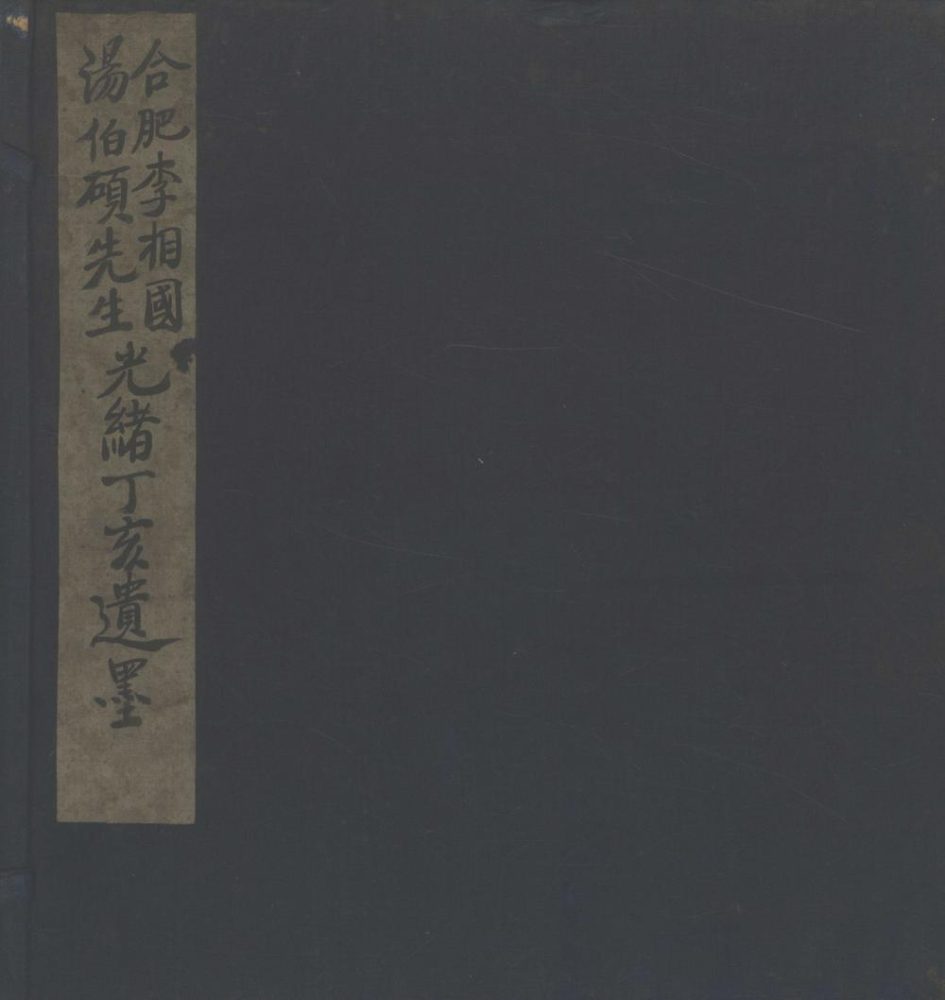 合肥李相國
湯伯碩先生
光緒丁亥遺墨